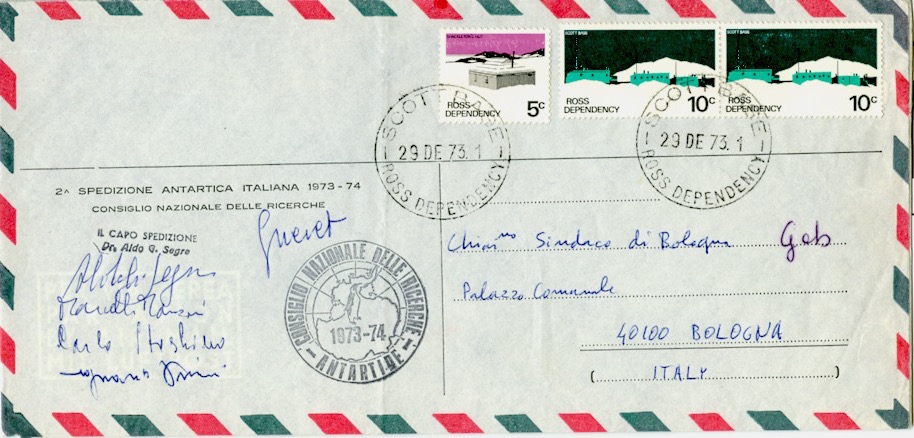 SHACKLETON'S HUT
ROSS
DEPENDENCY
5c
SCOTT BASE
ROSS
DEPENDENCY
10c
SCOTT BASE
ROSS
DEPENDENCY
10c
SCOTT BASE
29 DE 73.1
ROSS DEPENDENCY
SCOTT BASE
29 DE 73.1
ROSS DEPENDENCY
2ᴬ SPEDIZIONE ANTARTICA ITALIANA 1973-74
CONSIGLIO NAZIONALE DELLE RICERCHE
IL CAPO SPEDIZIONE
Dr. Aldo G. Segre
CONSIGLIO NAZIONALE DELLE RICERCHE
1973-74
ANTARTIDE
Chiar.mo Sindaco di Bologna
Gab
Palazzo Comunale
40100 BOLOGNA
( ITALY )